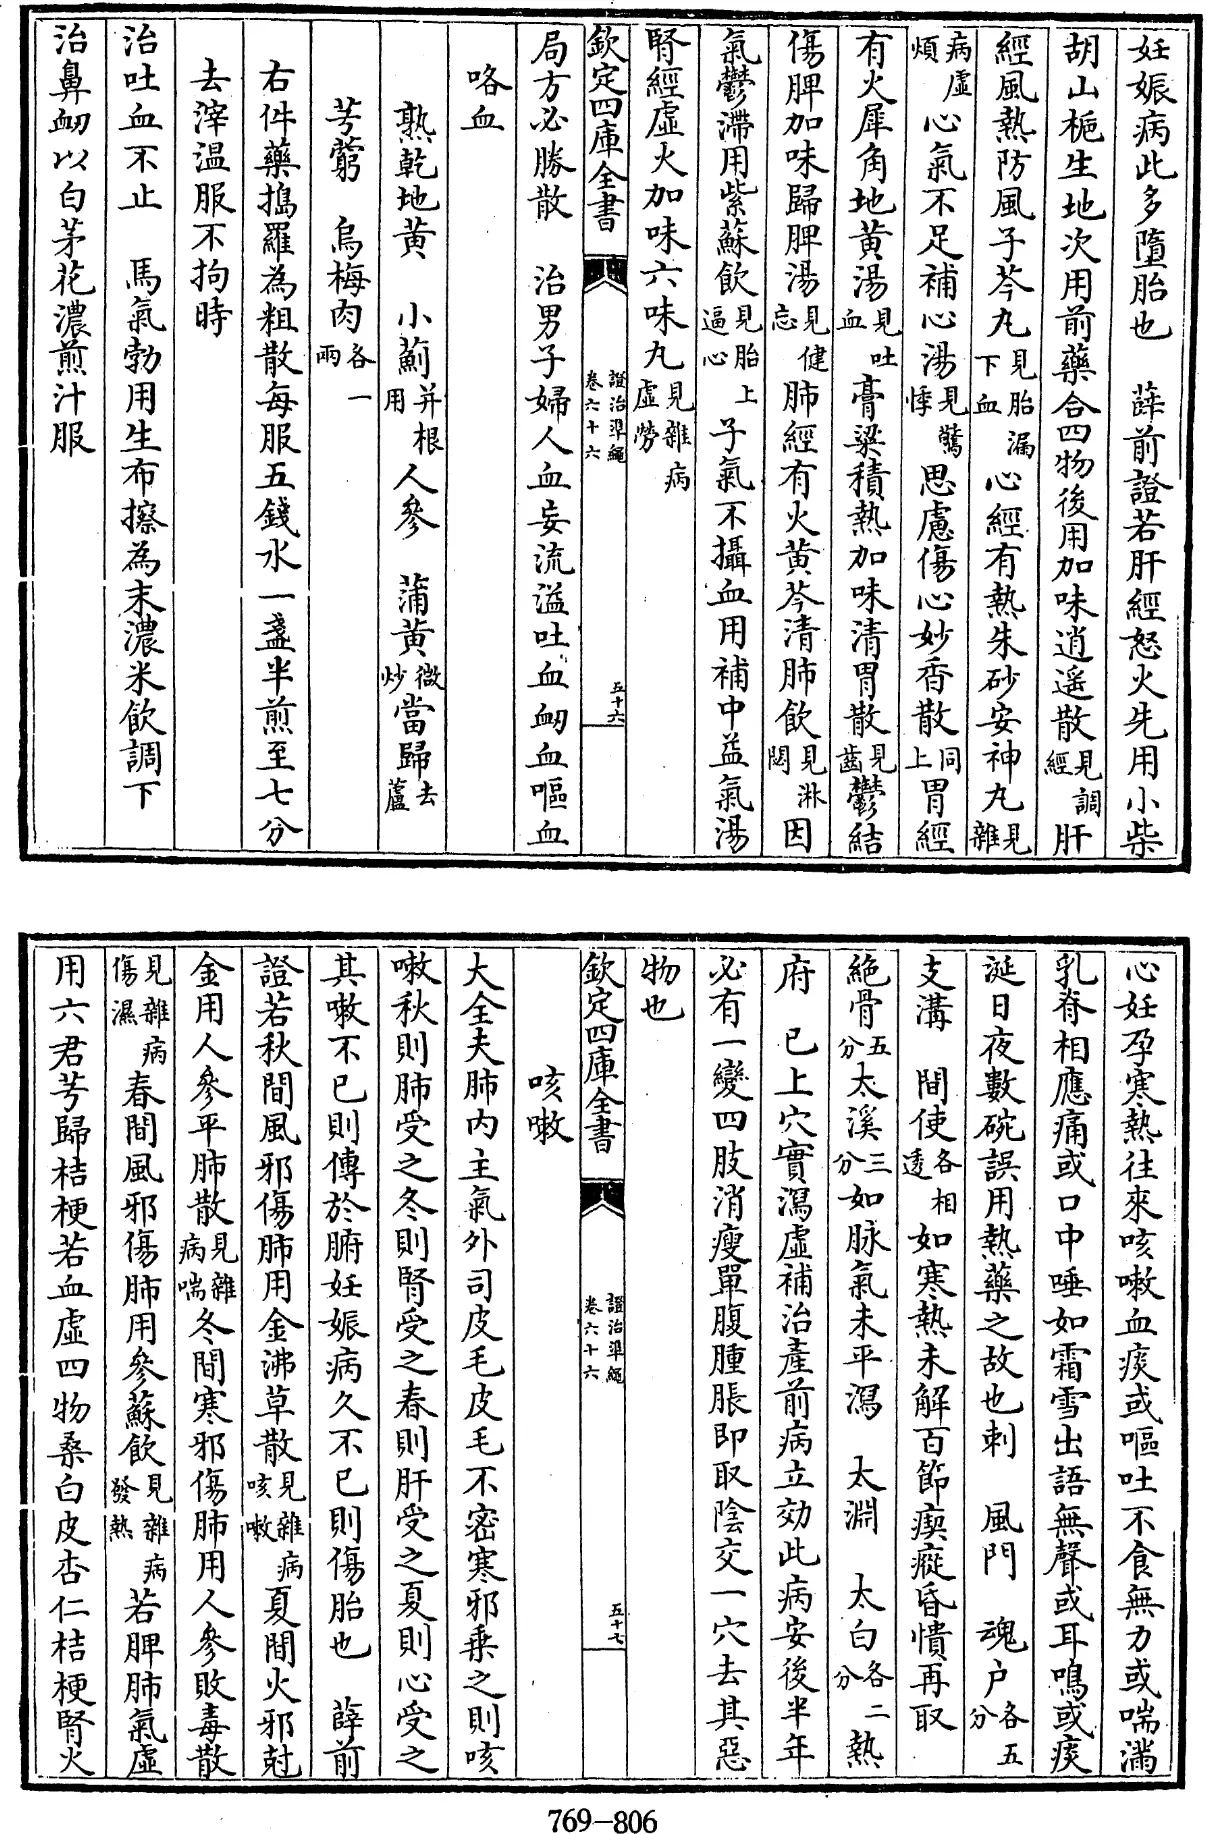 妊娠病此多墮胎也　薛前證若肝經怒火先用小柴
胡山梔生地次用前藥合四物後用加味逍遥散見調經肝
經風熱防風子芩丸見胎漏下血心經有熱朱砂安神丸見雜
病虛煩心氣不足補心湯見驚悸思慮傷心妙香散同上胃經
有火犀角地黄湯見吐血膏粱積熱加味清胃散見齒鬱結
傷脾加味歸脾湯見健忘肺經有火黄芩清肺飲見淋閟因
氣鬱滯用紫蘇飲見胎上逼心子氣不攝血用補中益氣湯
腎經虛火加味六味丸見雜病虛勞
欽定四庫全書　證治準繩卷六十六　五十六
局方必勝散　治男子婦人血妄流溢吐血衂血嘔血
咯血
熟乾地黄　小薊并根用人參　蒲黄微炒當歸去蘆
芎藭　烏梅肉各一兩
右件藥搗羅為粗散每服五錢水一盞半煎至七分
去滓温服不拘時
治吐血不止　馬氣勃用生布擦為末濃米飲調下
治鼻衂以白茅花濃煎汁服
心妊孕寒熱往來咳嗽血痰或嘔吐不食無力或喘滿
乳脊相應痛或口中唾如霜雪出語無聲或耳鳴或痰
涎日夜數碗誤用熱藥之故也刺　風門　魂户各五分
支溝　間使各相透如寒熱未解百節瘈瘲昏憒再取
絶骨五分太溪三分如脉氣未平瀉　太淵　太白各二分熱
府　已上穴實瀉虛補治產前病立効此病安後半年
必有一變四肢消瘦單腹腫脹即取陰交一穴去其惡
物也
欽定四庫全書　證治準繩卷六十六　五十七
咳嗽
大全夫肺内主氣外司皮毛皮毛不密寒邪乗之則咳
嗽秋則肺受之冬則腎受之春則肝受之夏則心受之
其嗽不已則傳於腑妊娠病久不已則傷胎也　薛前
證若秋間風邪傷肺用金沸草散見雜病咳嗽夏間火邪尅
金用人參平肺散見雜病喘冬間寒邪傷肺用人參敗毒散
見雜病傷濕春間風邪傷肺用參蘇飲見雜病發熱若脾肺氣虛
用六君芎歸桔梗若血虛四物桑白皮杏仁桔梗腎火
769—806